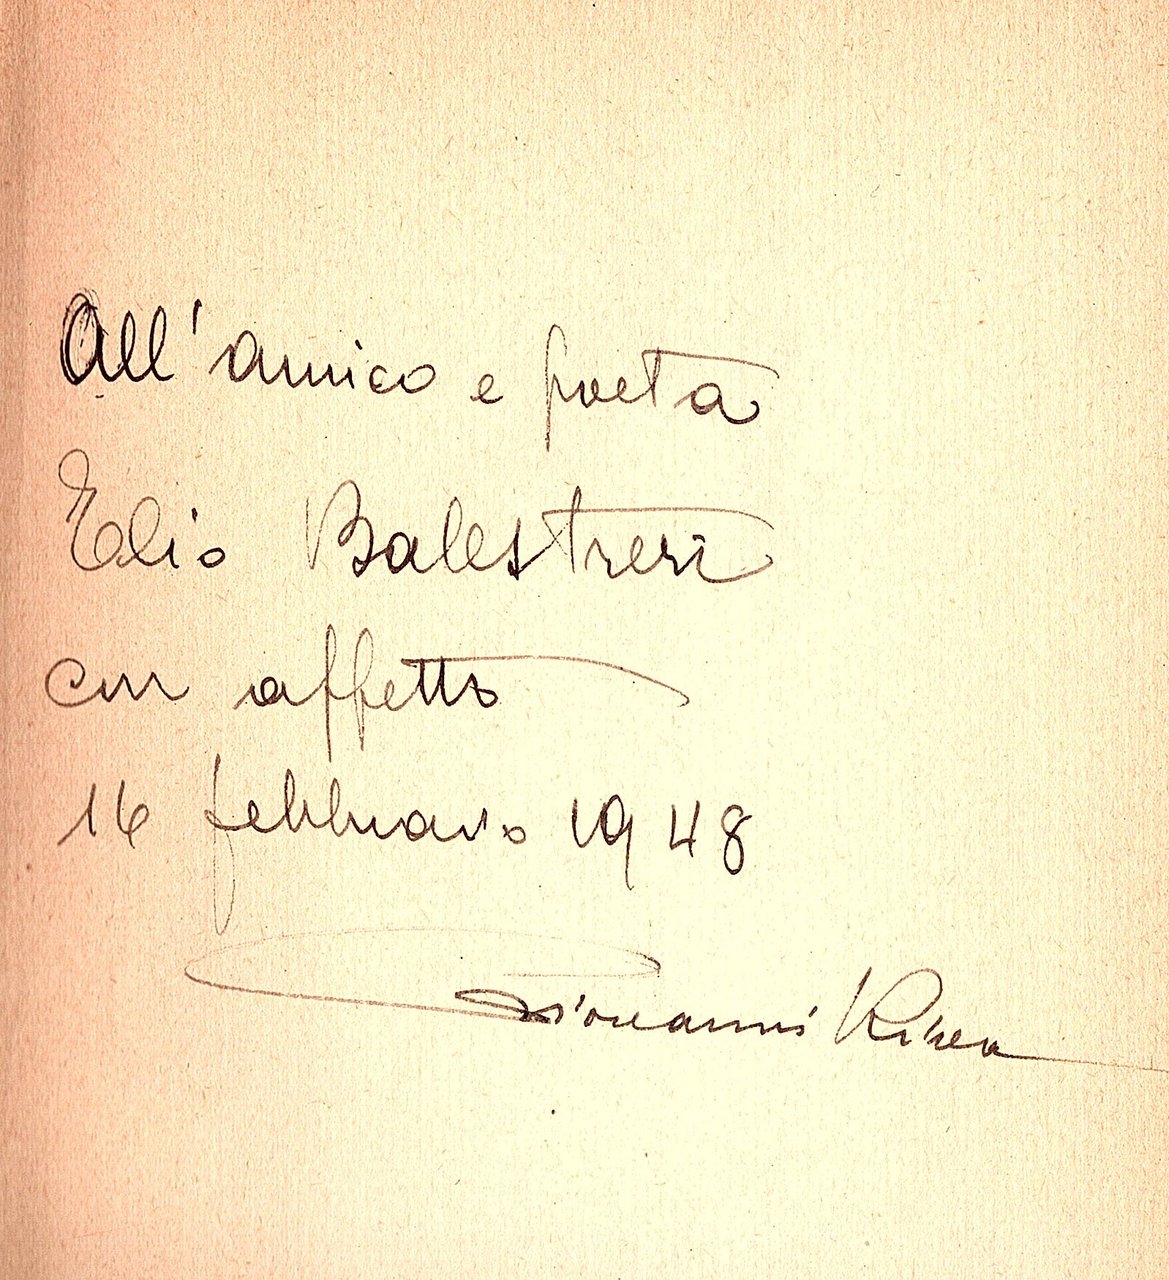 All'amico e poeta
Elio Balestreri
con affetto
16 febbraio 1948
Giovanni